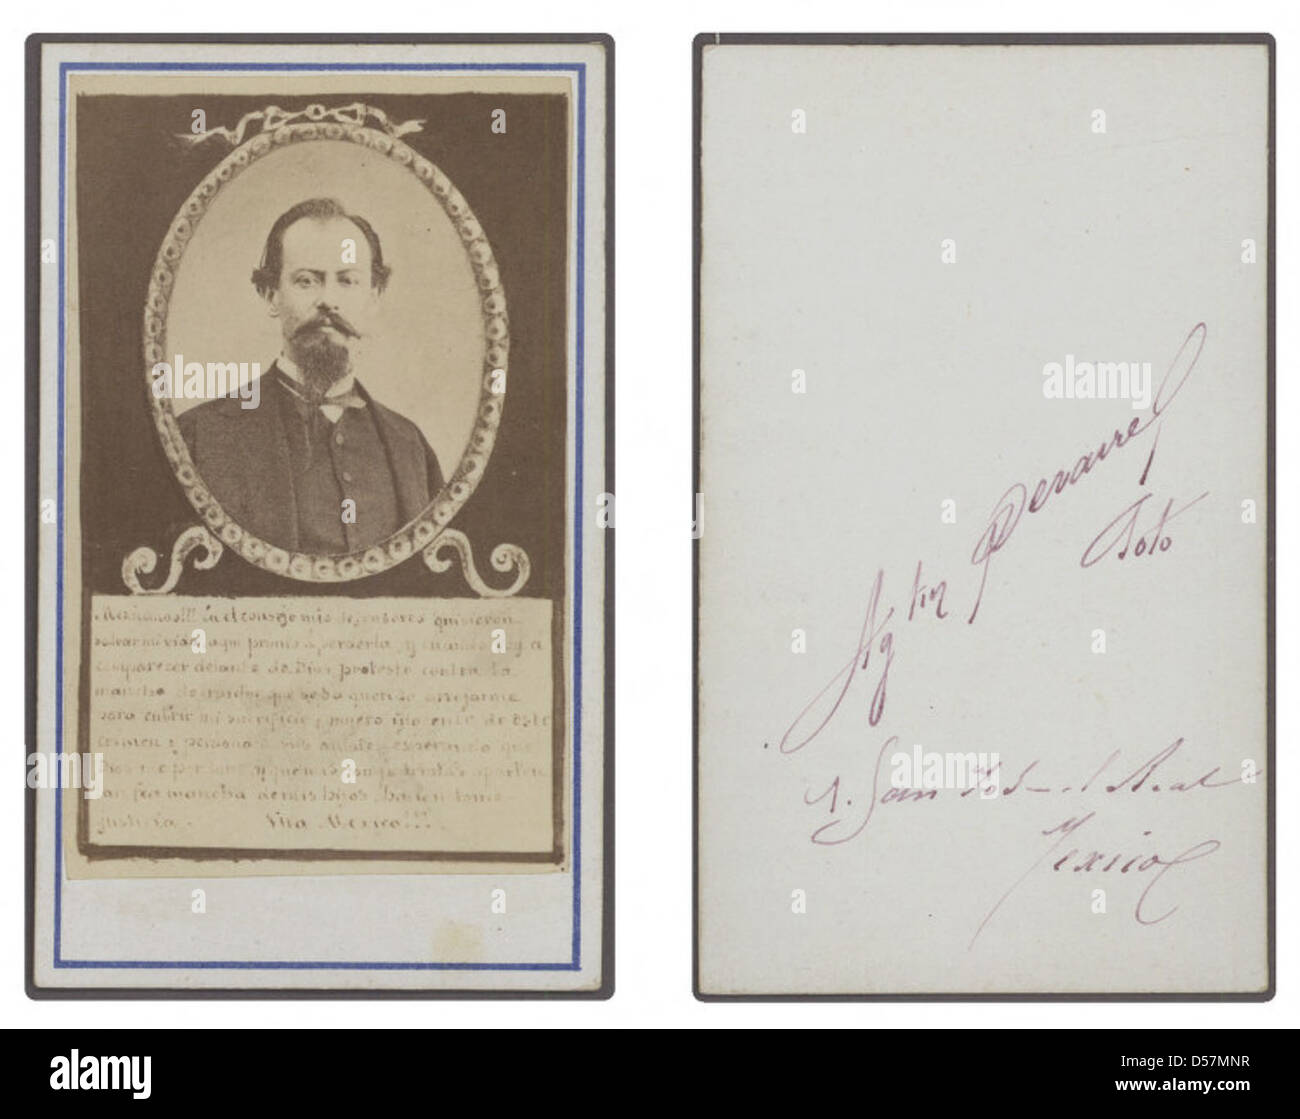 Mexicanos!!! En el consejo mis defensores quisieron
salvar mi vida, aqui pronto á perderla, y cuando voy a
comparecer delante de Dios, protesto contra la
mancha de traidor que se ha querido arrojarme
para cubrir mi sacrificio; muero inocente de este
crimen y perdono á mis autores esperando que
Dios me perdone y que mis compatriotas aparten
tan fea mancha de mis hijos haciendome
justicia. Viva Mexico!!!
Foto
1. San José el Real
Mexico
alamy
alamy
Image ID: D57MNR
www.alamy.com